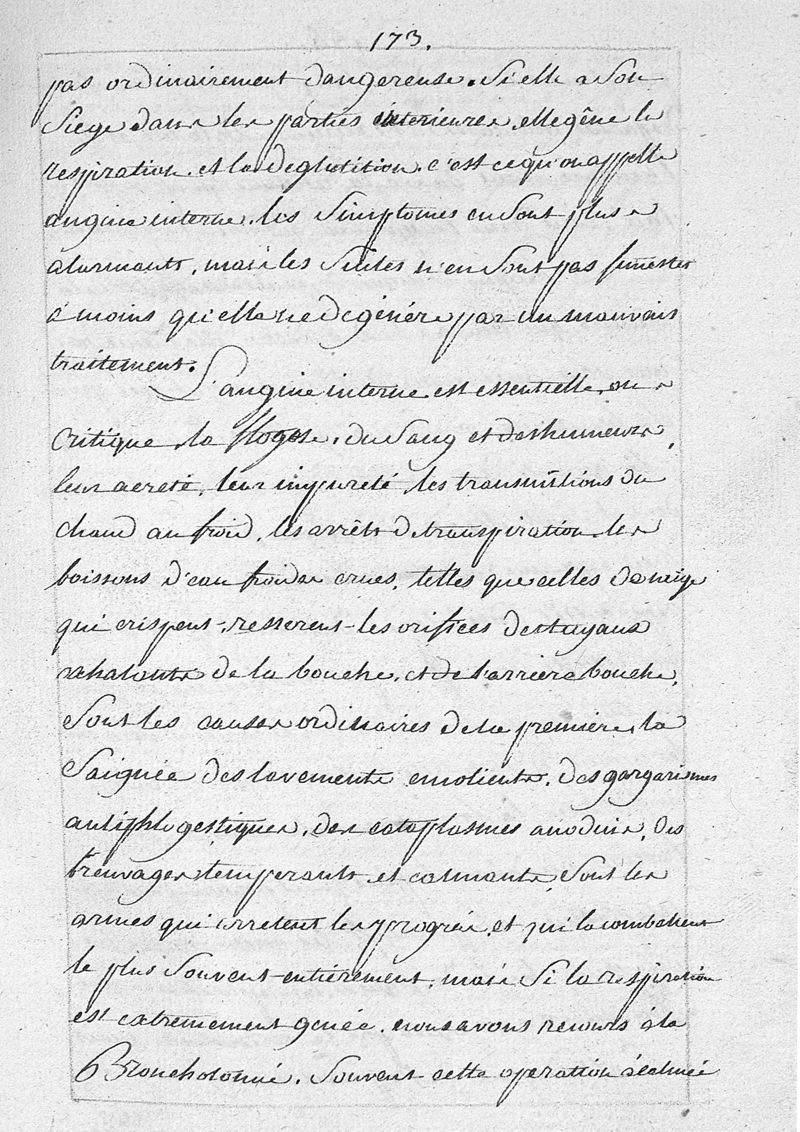 173.
pas ordinairement dangereuse. Si elle a son
Siege dans les parties interieures, elle gêne la
respiration. et la deglutition. c'est ce qu'on appelle
angine interne. les Simptomes en sont plus
alarmants, mais les Suites n'en sont pas funestes
à moins qu'elle ne dégénére par un mauvais
traitement.
L'angine interne est essentielle, ou
critique, la flogose, du Sang et des humeurs,
leur acreté, leur impureté, les transmittions du
chaud au froid, les arrêts de transpiration, les
boissons d'eau froide crues, telles que celles de neige
qui crispent, resserent les orifices des tuyaux
exhalants de la bouche, et de l'arriere bouche,
Sont les causes ordinaires de la premiere, la
Saignée des lavements emolients, des gargarismes
antiphlogestiques, des cataplasmes anodins, des
breuvages temperants et calmants, sont les
armes qui arretent les progrès, et qui la combattent
le plus Souvent entiérement, mais Si la respiration
est extremement genée, nous avons recours à la
Bronchotomie. Souvent cette operation